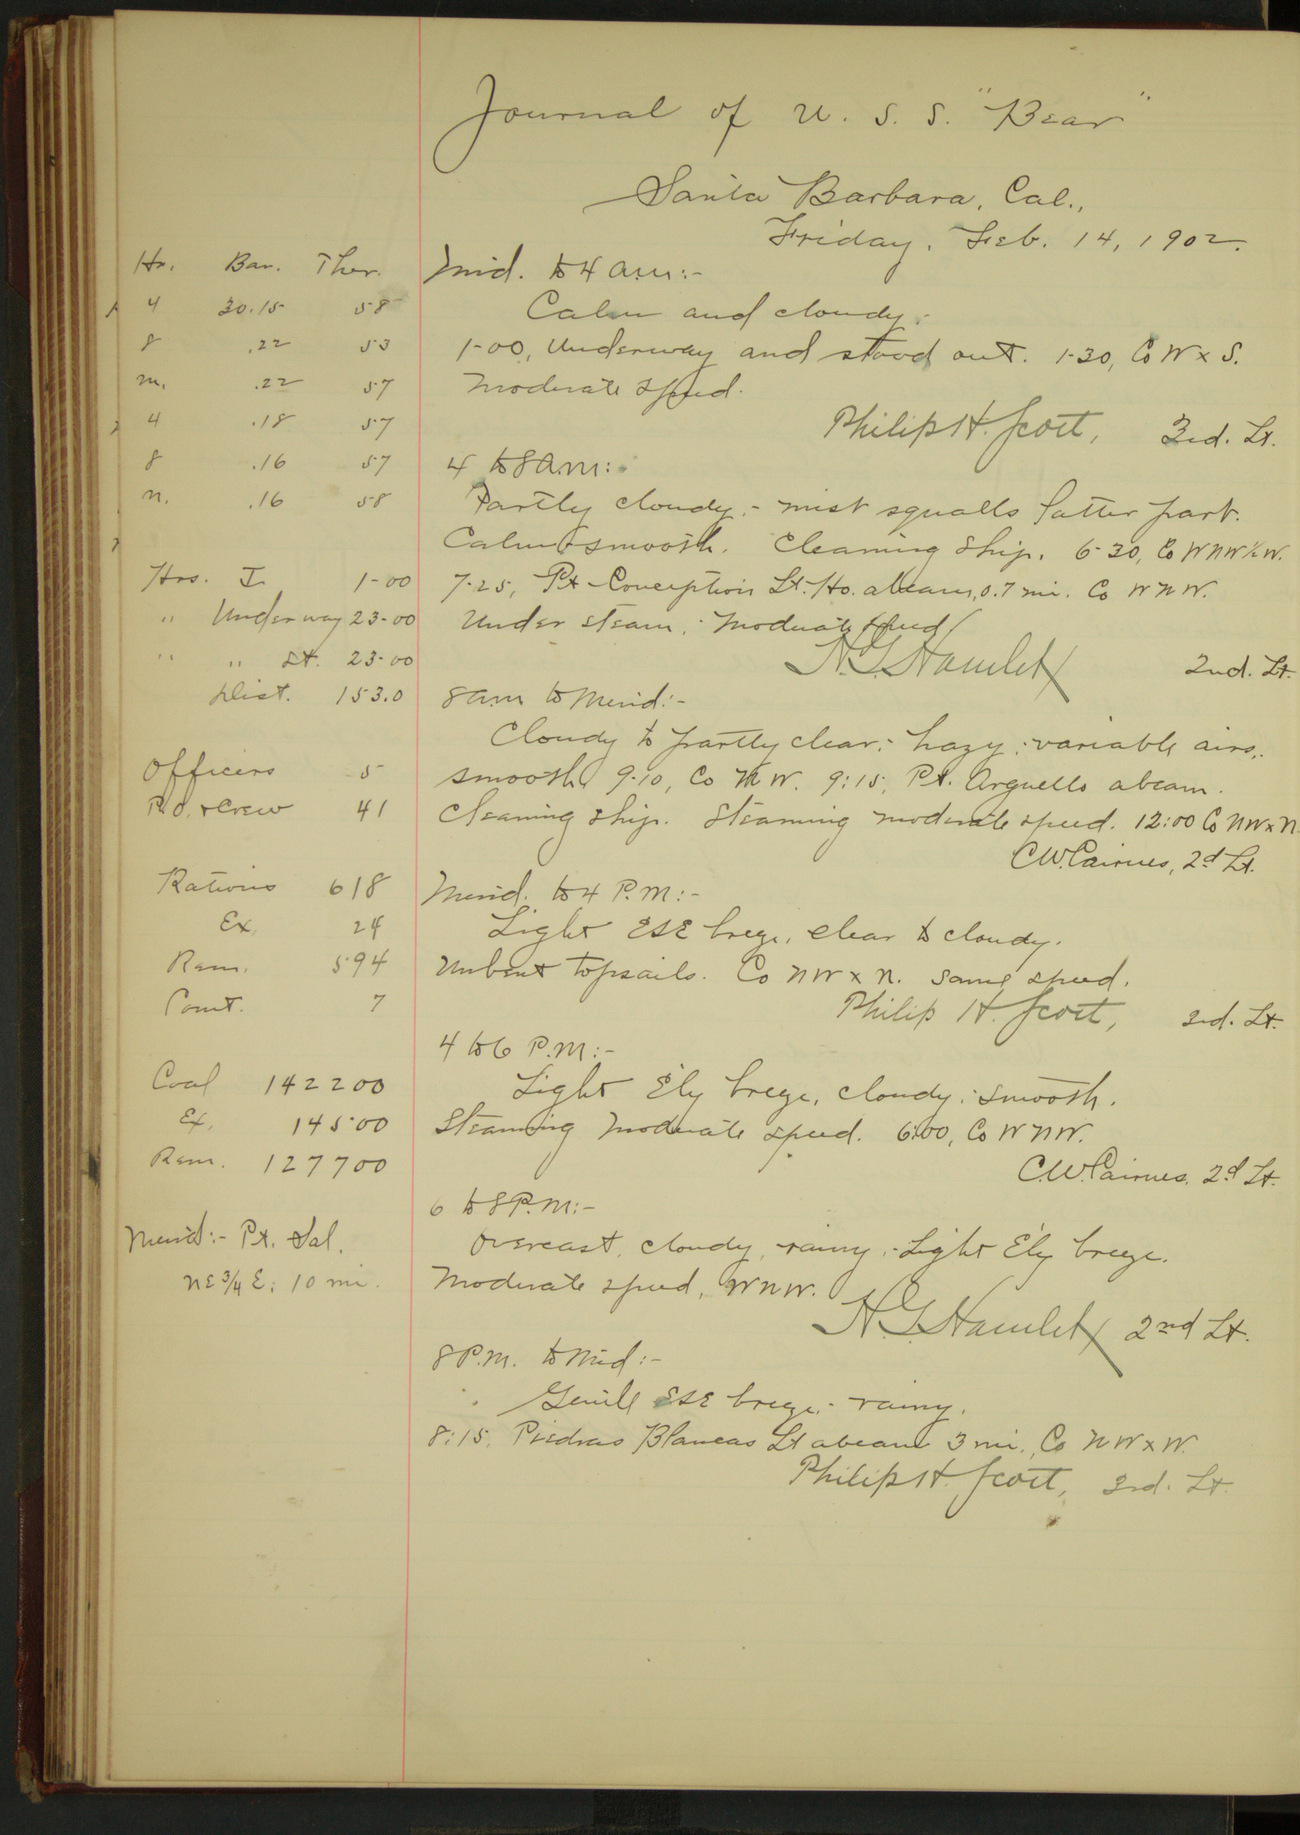 Journal of U. S. S. "Bear"
Santa Barbara, Cal.,
Friday, Feb. 14, 1902.
Hr. Bar. Ther.
4 30.15 58
8 .22 53
m. .22 57
4 .18 57
8 .16 57
n. .16 58
Hrs. I. 1-00
" Underway 23-00
" " St. 23-00
Dist. 153.0
Officers 5
P.O. & Crew 41
Rations 618
Ex. 24
Rem. 594
Comt. 7
Coal 142200
Ex. 14500
Rem. 127700
Merid:- Pt. Sal.
NE 3/4 E; 10 mi.
Mid. to 4 a.m:-
Calm and cloudy.
1-00, Underway and stood out. 1-30, Co W x S.
Moderate speed.
Philip H. Scott, 3rd. Lt.
4 to 8 a.m:-
Partly cloudy,- mist squalls latter part.
Calm & smooth. Cleaning ship. 6-30, Co WNW 1/2 W.
7-25, Pt Conception Lt. Ho. abeam, 0.7 mi. Co WNW.
Under steam, moderate speed
H.G. Hamlet 2nd. Lt.
8 a.m to Merid:-
Cloudy to partly clear;- hazy; variable airs;
smooth. 9-10, Co NW. 9:15, Pt. Arguello abeam.
Cleaning ship. Steaming moderate speed. 12:00 Co NW x N.
C.W. Cairnes, 2d Lt.
Merid. to 4 P.M:-
Light ESE breeze, clear to cloudy.
Unbent topsails. Co NW x N. same speed.
Philip H. Scott, 3rd. Lt.
4 to 6 P.M:-
Light E'ly breeze, cloudy; smooth.
Steaming moderate speed. 6:00, Co WNW.
C.W. Cairnes, 2d Lt.
6 to 8 P.M:-
Overcast, cloudy, rainy,- Light E'ly breeze.
Moderate speed, WNW.
H.G. Hamlet 2nd Lt.
8 P.M. to Mid:-
Gentle ESE breeze,- rainy.
8:15, Piedras Blancas Lt abeam 3 mi., Co NW x W.
Philip H. Scott, 3rd. Lt.